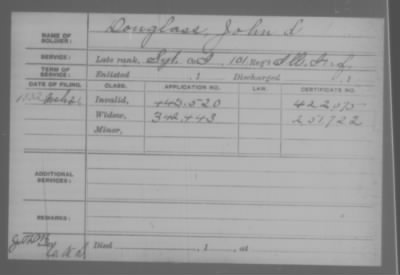 NAME OF SOLDIER: Douglass, John S
SERVICE: Late rank, Sgt. Co. I, 101 Reg't Ill. Inf
TERM OF SERVICE: Enlisted , 1 Discharged , 1
DATE OF FILING. CLASS. APPLICATION NO. LAW. CERTIFICATE NO.
1882 Invalid, 443.520 422,075
Widow, 342,443 251722
Minor,
ADDITIONAL SERVICES:
REMARKS:
Died , 1 , at